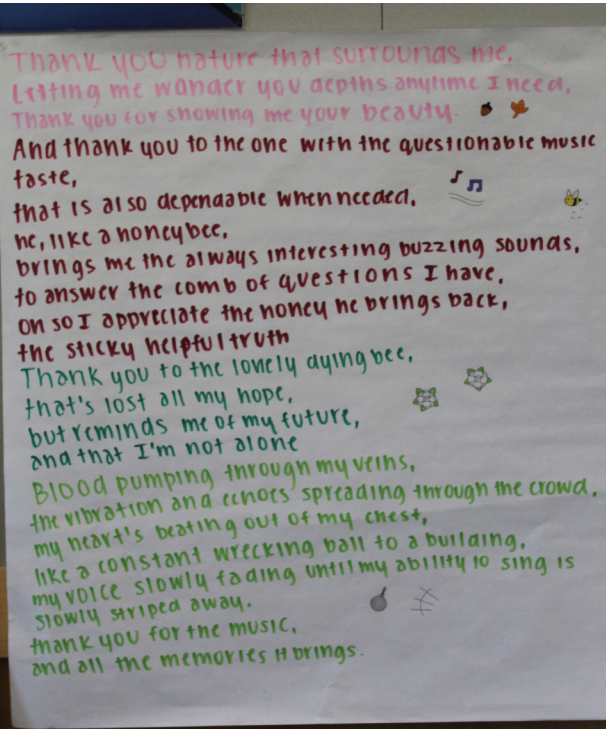 Thank you nature that surrounds me,
Letting me wander you depths anytime I need,
Thank you for showing me your beauty.
And thank you to the one with the questionable music
taste,
that is also dependable when needed,
he, like a honeybee,
brings me the always interesting buzzing sounds,
to answer the comb of questions I have,
oh so I appreciate the honey he brings back,
the sticky helpful truth
Thank you to the lonely dying bee,
that's lost all my hope,
but reminds me of my future,
and that I'm not alone
Blood pumping through my veins,
the vibration and echoes spreading through the crowd,
my heart's beating out of my chest,
like a constant wrecking ball to a building,
my voice slowly fading until my ability to sing is
slowly striped away.
thank you for the music,
and all the memories it brings.